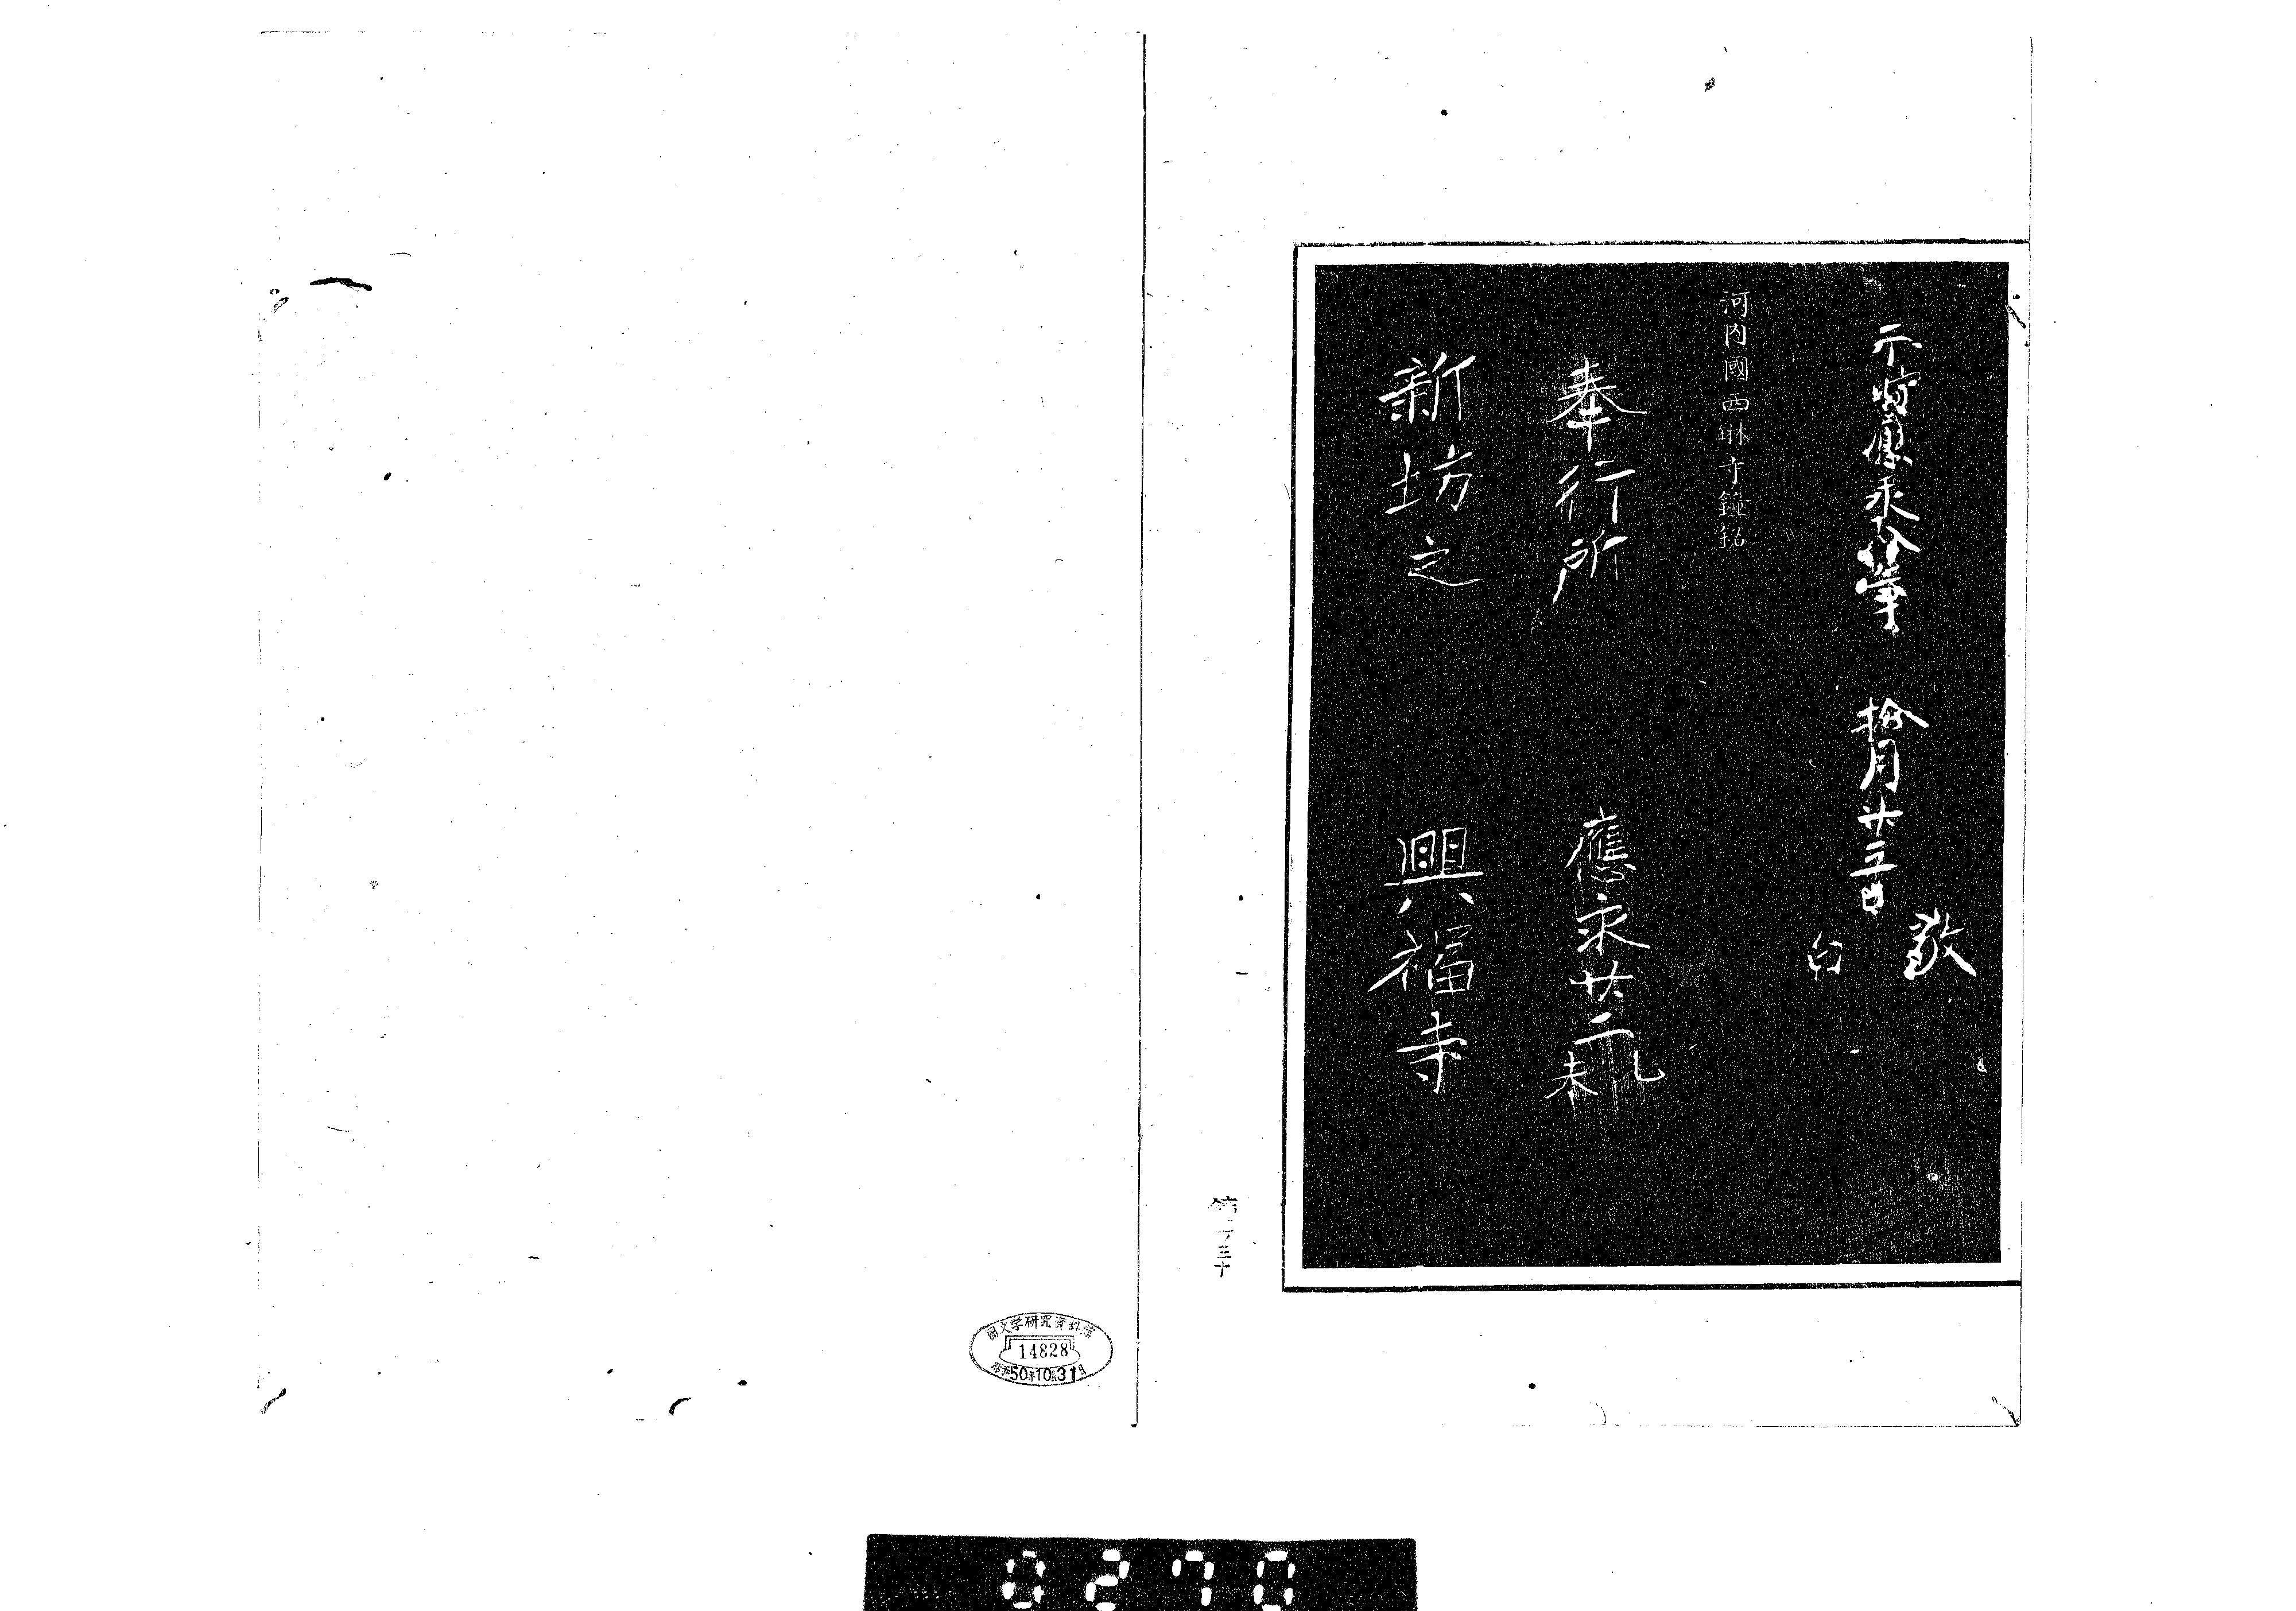 拾月廿三日 敬白
河内國西琳寺鐘銘
奉行所 應永廿二乙未
新坊之 興福寺
国文学研究資料館
14828
昭和50年10月31日
0270